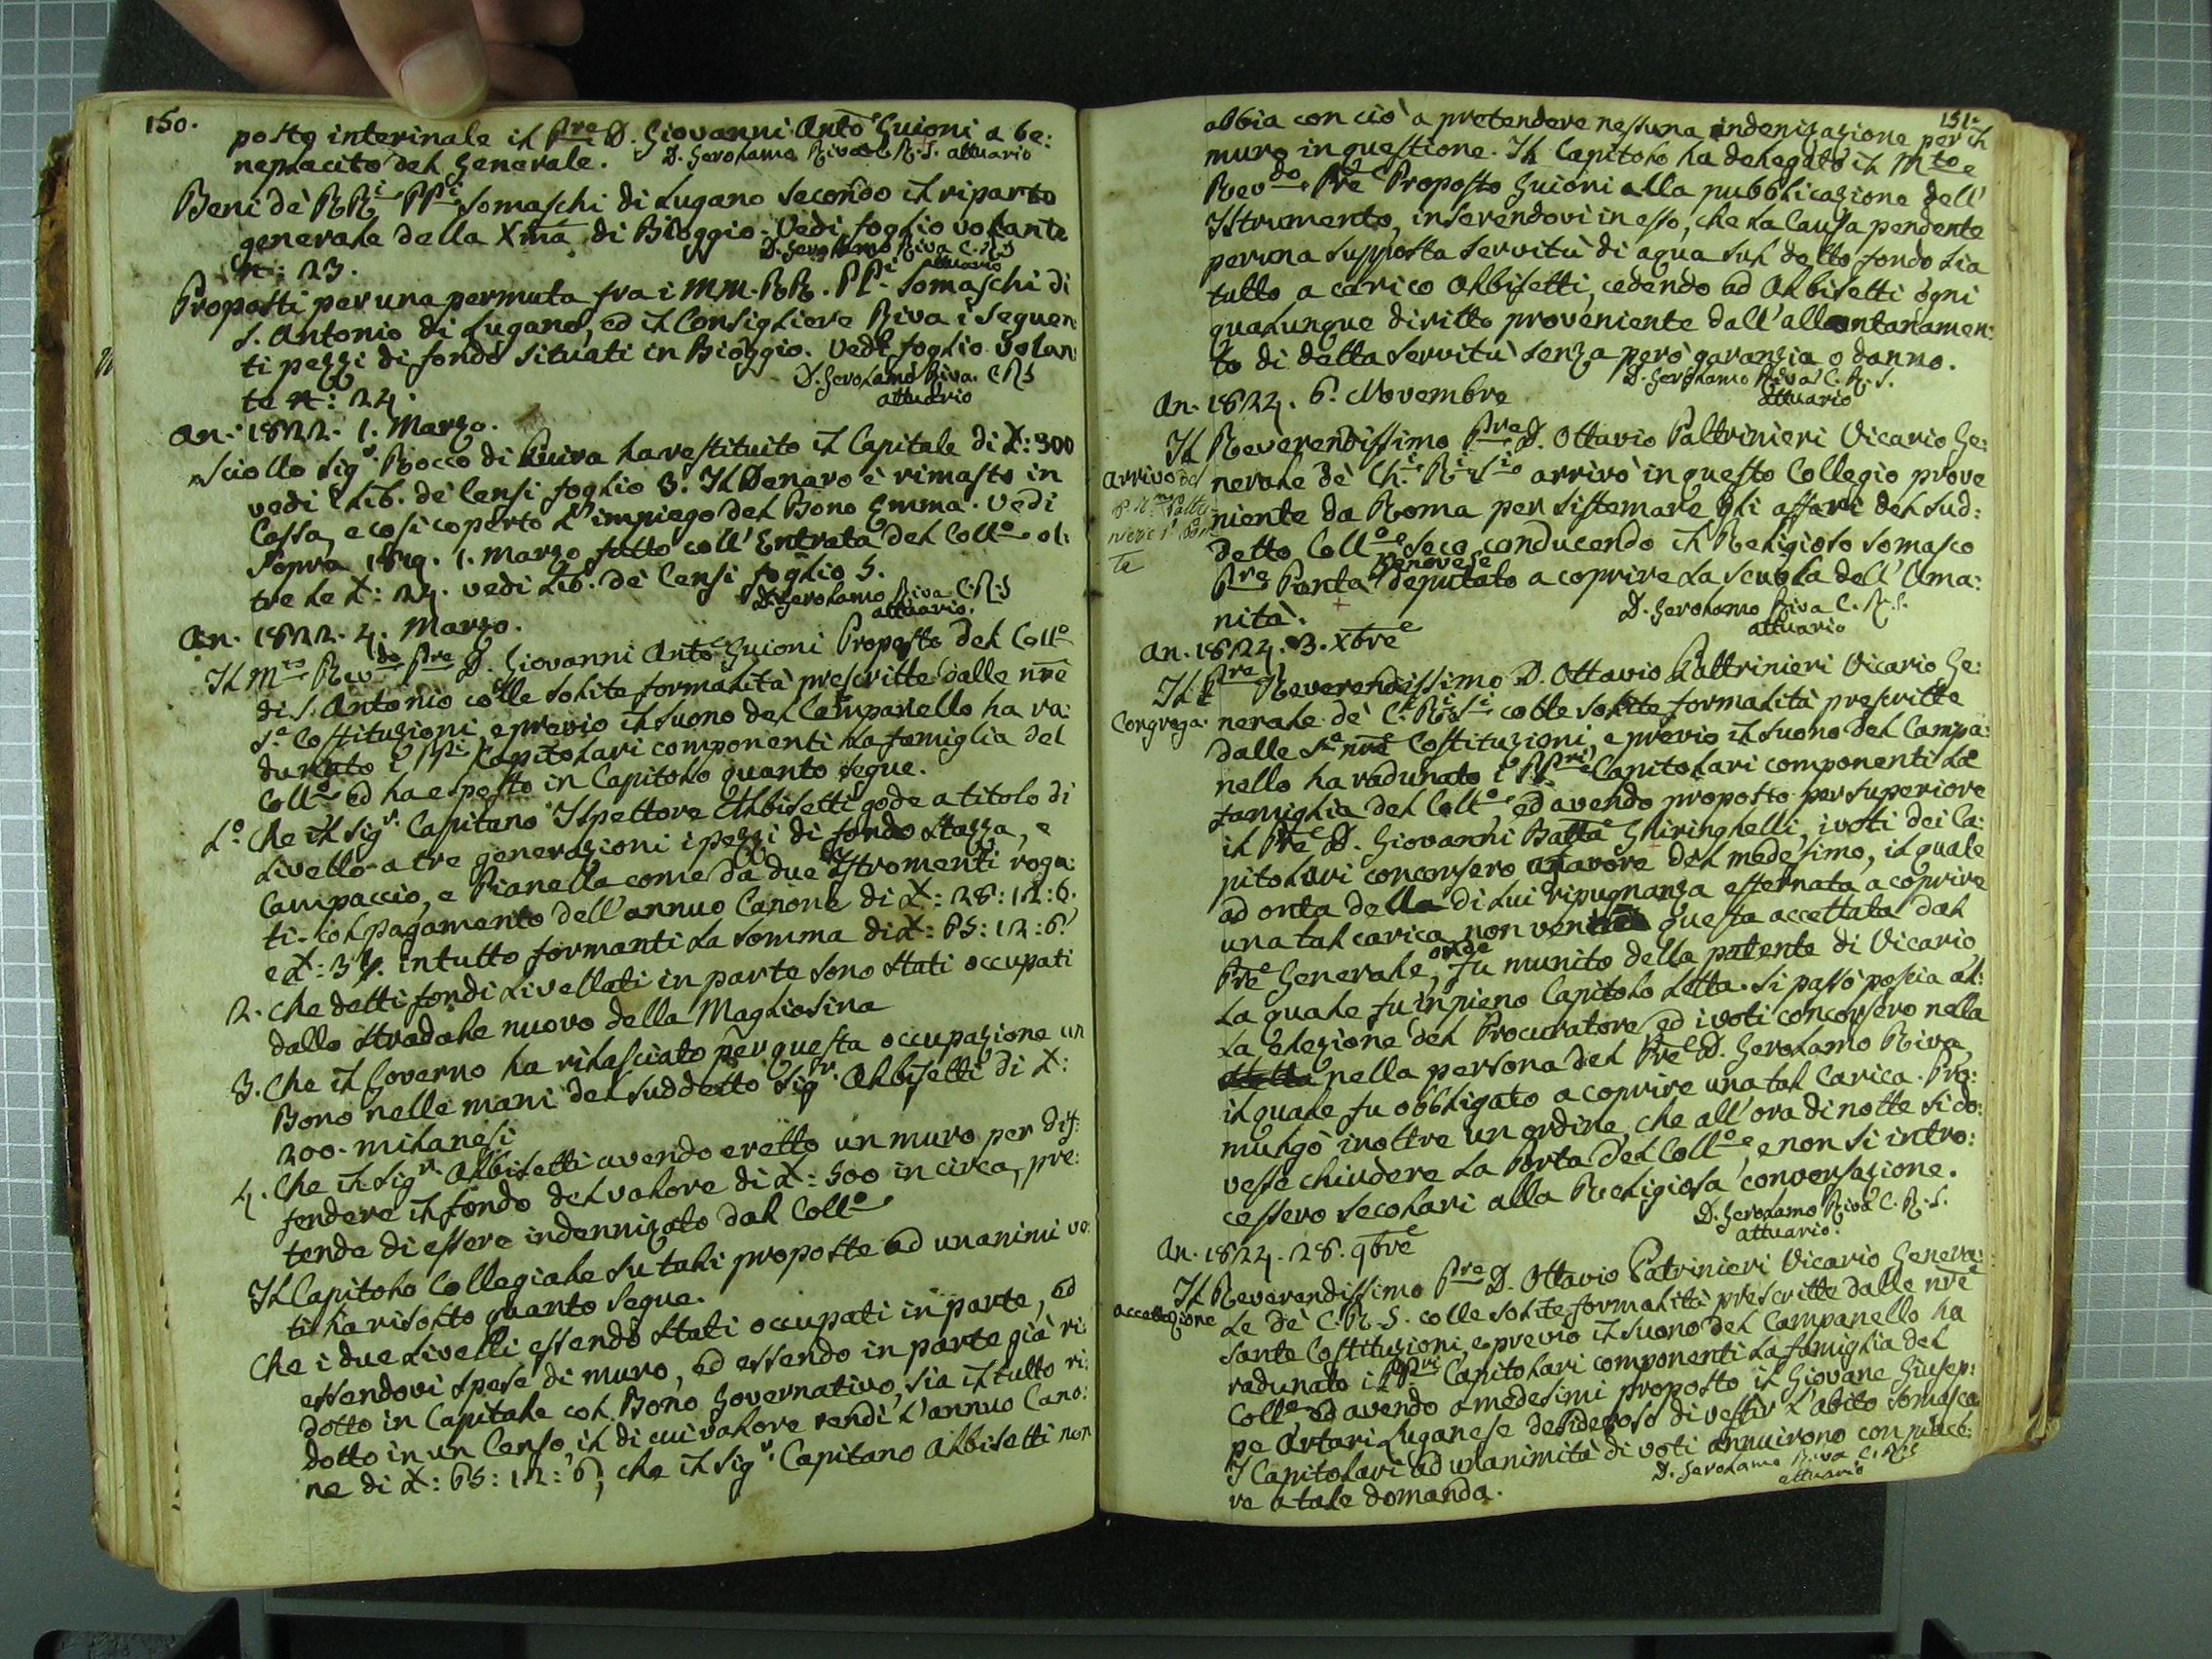 150.
posto interinale il Pre D. Giovanni Anto Guioni a be:
neplacito del Generale. D. Gerolamo Riva C. R. S. attuario
Beni dè RRi PPi Somaschi di Lugano secondo il riparto
generale della Xma di Bioggio. Vedi foglio volante
n: 23. D. Gerolamo Riva C. R. S
attuario
Proposti per una permuta fra i MM. RR. PPi Somaschi di
S. Antonio di Lugano, ed il Consigliere Riva i seguen:
ti pezzi di fondo situati in Bioggio. Vedi foglio volan:
te n: 24. D. Gerolamo Riva. C R S
attuario
An. 1822. 1. Marzo.
Sciollo Sigr. Rocco di ha restituito il Capitale di L: 300
vedi Lib. de Censi foglio 3. Il Denaro è rimasto in
Cassa, e così coperto l'impiego del Bono Emma. Vedi
sopra 1819. 1. Marzo fatto coll'Entrata del Collo ol:
tre le L: 24. vedi Lib. dè Censi foglio 5.
D. Gerolamo Riva C. R. S
attuario.
An. 1822. 4. Marzo.
Il Mto Revdo Pre D. Giovanni Anto Guioni Proposto del Collo
di S. Antonio colle solite formalità prescritte dalle nre
Se Costituzioni, e previo il suono del Campanello ha ra:
dunato i PPri Capitolari componenti la famiglia del
Collo ed ha esposto in Capitolo quanto segue.
1.o Che il Sigr. Capitano Ispettore Albisetti gode a titolo di
Livello a tre generazioni i pezzi di fondo Stazza, e
Campaccio, e Pianella come da due Istromenti roga:
ti. Col pagamento dell'annuo Canone di L: 28: 12: 6.
e L: 37. in tutto formanti la somma di L: 65: 12: 6.
2. Che detti fondi livellati in parte sono stati occupati
dallo stradale nuovo della Magliasina
3. Che il Governo ha rilasciato per questa occupazione un
Bono nelle mani del suddetto Sigr. Albisetti di L:
200. milanesi
4. Che il Sigr. Albisetti avendo eretto un muro per dif:
fendere il fondo del valore di L: 500 in circa, pre:
tende di essere indennizato dal Collo
Il Capitolo Collegiale su tali proposte ad unanimi vo:
ti ha risolto quanto segue.
Che i due Livelli essendo stati occupati in parte, ed
essendovi spese di muro, ed essendo in parte già ri:
dotto in Capitale col Bono Governativo, sia il tutto ri:
dotto in un Censo, il di cui valore rendi l'annuo Cano:
ne di L: 65: 12: 6, che il Sigr. Capitano Albisetti non
151.
abbia con ciò a pretendere nessuna indenizazione per il
muro in questione. Il Capitolo ha delegato il Mto e
Revdo Pre Proposto Guioni alla pubblicazione dell'
Istrumento, inserendovi in esso, che la Causa pendente
per una supposta servitù di aqua sul detto fondo sia
tutto a carico Albisetti, cedendo ad Albisetti ogni
qualunque diritto proveniente dall'allontanamen:
to di detta servitù senza però garanzia o danno.
D. Gerolamo Riva C. R. S.
attuario
An. 1824. 6. Novembre
Il Reverendissimo Pre D. Ottavio Paltrinieri Vicario Ge:
Arrivo del
nerale dè Ch.i Ri Si arrivò in questo Collegio prove
niente da Roma per sistemare gli affari del sud:
detto Collo seco conducendo il Religioso Somasco
te
Genovese
Pre Ponta deputato a coprire la scuola dell'Uma:
nità. D. Gerolamo Riva C. R. S.
attuario
An. 1824. 3. Xbre
Il Pre Reverendissimo D. Ottavio Paltrinieri Vicario Ge:
Congrega.
nerale dè C.i Ri Si colle solite formalità prescritte
dalle Se nre Costituzioni, e previo il suono del Campa:
nello ha radunato i PPri Capitolari componenti la
famiglia del Collo, ed avendo proposto per superiore
il Pre D. Giovanni Batta Ghiringhelli, i voti dei Ca:
pitolari concorsero a favore del medesimo, il quale
ad onta della di lui ripugnanza esternata a coprire
una tal carica non venne questa accettata dal
onde
Pre Generale, fu munito della patente di Vicario
la quale fu in pieno Capitolo letta. Si passò poscia al:
la elezione del Procuratore ed i voti concorsero nella
nella persona del Pre D. Gerolamo Riva
il quale fu obbligato a coprire una tal Carica. Pro:
mulgò inoltre un ordine, che all'ora di notte si do:
vesse chiudere la Porta del Collo, e non si intro:
cessero secolari alla Religiosa conversazione.
D. Gerolamo Riva C. R. S.
attuario.
An. 1824. 28. 9bre
Il Reverendissimo Pre D. Ottavio Patrinieri Vicario Genera:
accettazione
le dè C. R. S. colle solite formalità prescritte dalle nre
Sante Costituzioni, e previo il suono del Campanello ha
radunato i PPri Capitolari componenti la famiglia del
Collo ed avendo a medesimi proposto il Giovane Giusep:
pe Artari Luganese desideroso di vestir l'abito Somasco
I Capitolari ad unanimità di voti annuirono con piace:
re a tale domanda. D. Gerolamo Riva C. R. S
attuario